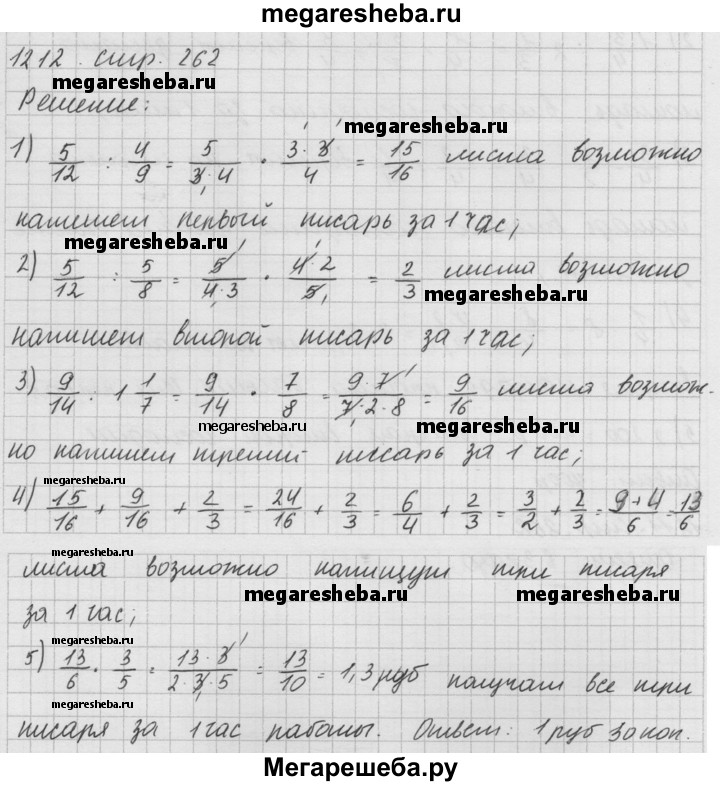 megaresheba.ru
1212. стр. 262
megaresheba.ru
Решение:
megaresheba.ru
1) 5/12 : 4/9 = 5/(3·4) · (3·3)/4 = 15/16 листа возможно
напишет первый писарь за 1 час;
megaresheba.ru
2) 5/12 : 5/8 = 5/(4·3) · (4·2)/5 = 2/3 листа возможно
megaresheba.ru
напишет второй писарь за 1 час;
3) 9/14 : 1 1/7 = 9/14 · 7/8 = (9·7)/(7·2·8) = 9/16 листа возмож-
megaresheba.ru megaresheba.ru
но напишет третий писарь за 1 час;
megaresheba.ru
4) 15/16 + 9/16 + 2/3 = 24/16 + 2/3 = 6/4 + 2/3 = 3/2 + 2/3 = (9+4)/6 = 13/6
megaresheba.ru
листа возможно напишут три писаря
megaresheba.ru megaresheba.ru
за 1 час;
megaresheba.ru
5) 13/6 · 3/5 = (13·3)/(2·3·5) = 13/10 = 1,3 руб получат все три
megaresheba.ru
писаря за 1 час работы. Ответ: 1 руб 30 коп.
Мегарешеба.ру